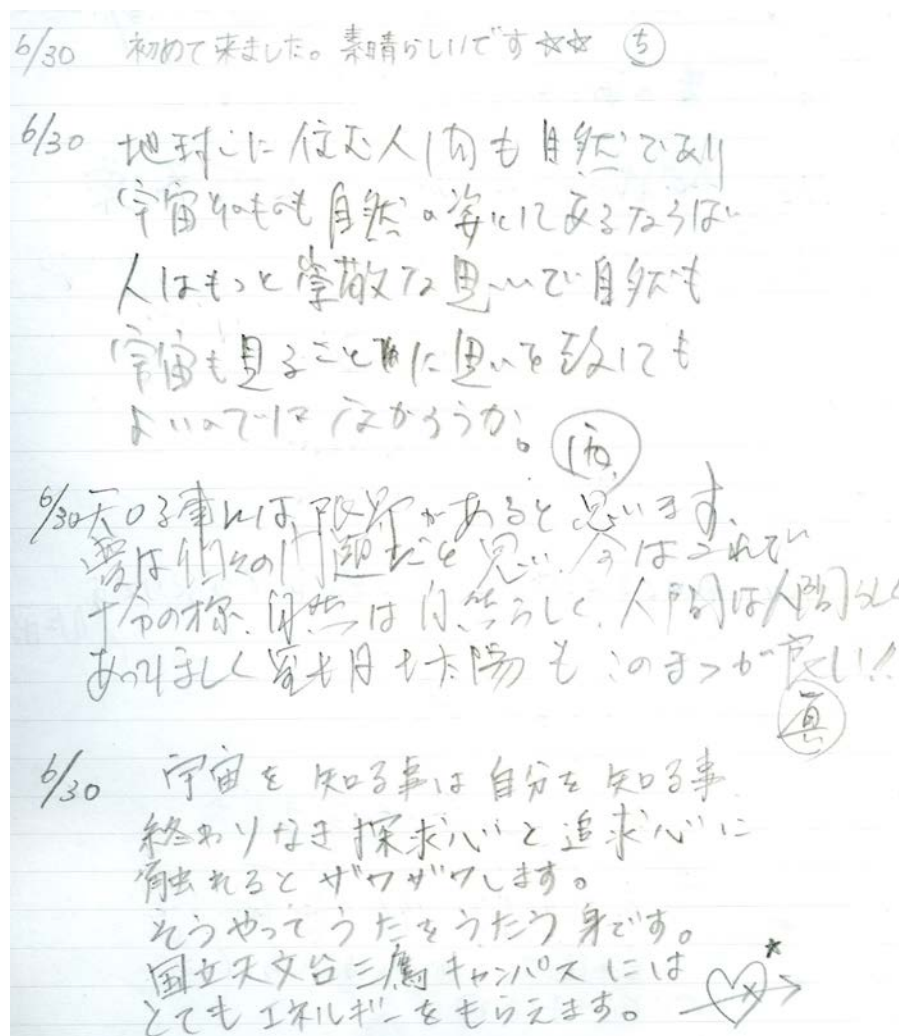 6/30 初めて来ました。素晴らしいです☆☆ ち
6/30 地球に住む人間も自然であり
宇宙そのものも自然の姿にてあるならば
人はもっと崇敬な思いで自然も
宇宙も見ることに思いを致しても
よいのではなかろうか。
6/30 知る事には限界があると思います、
夢は個々の問題だと思い、今はこれで
十分の様、自然は自然らしく、人間は人間らしく
あってほしく星も月も太陽もこのまゝが良い!!
真
6/30 宇宙を知る事は自分を知る事
終わりなき探求心と追求心に
触れるとザワザワします。
そうやってうたをうたう身です。
国立天文台三鷹キャンパスには
とてもエネルギーをもらえます。